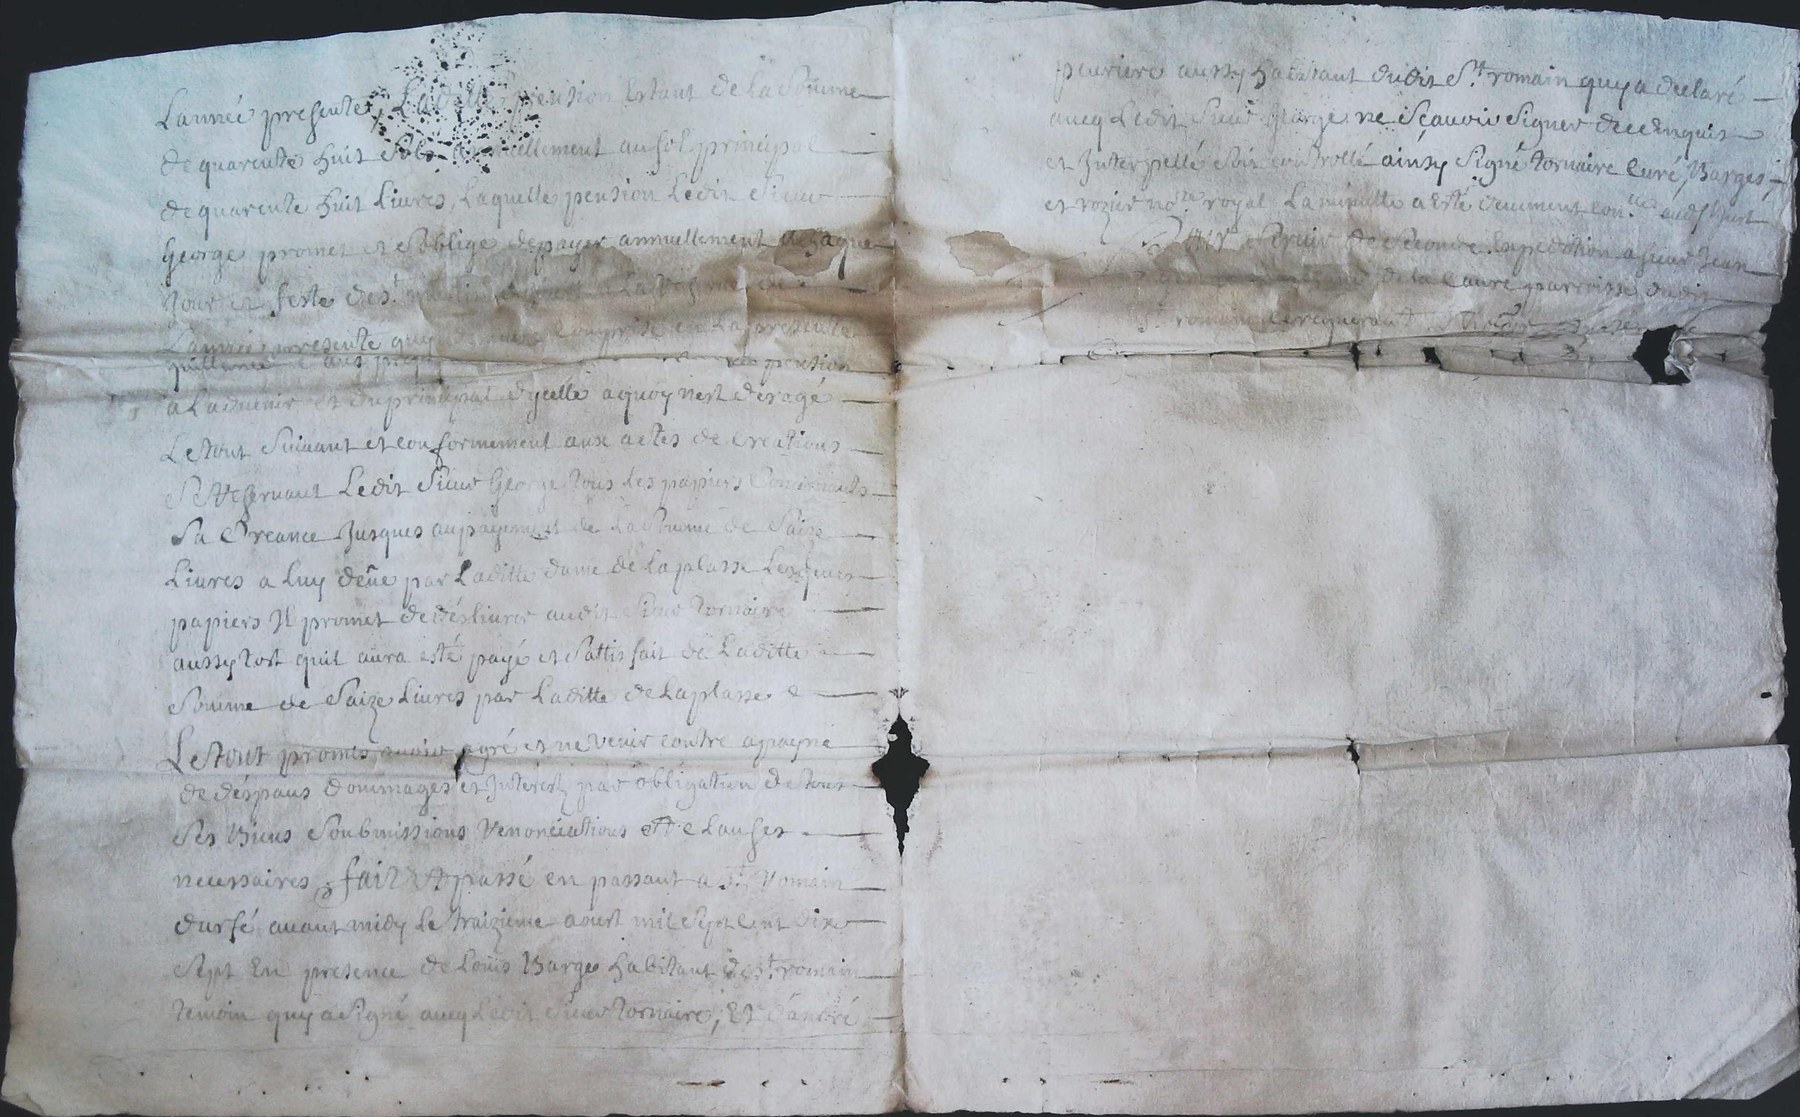 L'année presente, Laditte pention Estant de la Somme
de quarente huit Sols annuellement au sol principal
de quarente huit Livres, Laquelle pension Ledit Sieur
George promet et Soblige de payer annuellement a chaque
Jour et feste de St
L'année presente quy comprise en La presente
quittance pention
a Laduenir et du principal dycelle a quoy n'est déragé
Le tout Suiuant et conformement aux actes de Creations
Se Reseruant Ledit Sieur George tous les papiers Concernants
Sa Creance Jusques au payement de La Somme de Saize
Liures a luy deüe par Laditte dame de Laplasse Lesquels
papiers Il promet de desliurer audit Sieur tornaire
aussy tost quil aura esté payé et Sattisfait de Laditte
Somme de Saize Liures par Laditte de Laplasse
Le tout promis auoir agré et ne venir contre a payne
de déspans dommages et Interests par obligation de tous
Ses Biens Soubmissions Renonciations et Clauses
necessaires fait et passé en passant a St Romain
durfé auant midy Le traizieme aoust mil Sept Cent dix
Sept En presence de Louis Barge habitant de St romain
temoin quy a Signé aueq Ledit Sieur tornaire, Et d'andré
peuriere aussy habitant dudit St romain quy a declaré
aueq Ledit Sieur George ne Sçauoir Signer de ce Enquis
et Interpellé Soit controllé ainsy Signé tornaire Curé, Barge,
et rozier nore royal La minutte a Esté duement
Seconde Expedition a Sieur Jean
de la Caure parroisse dudit
St romain Le requerant